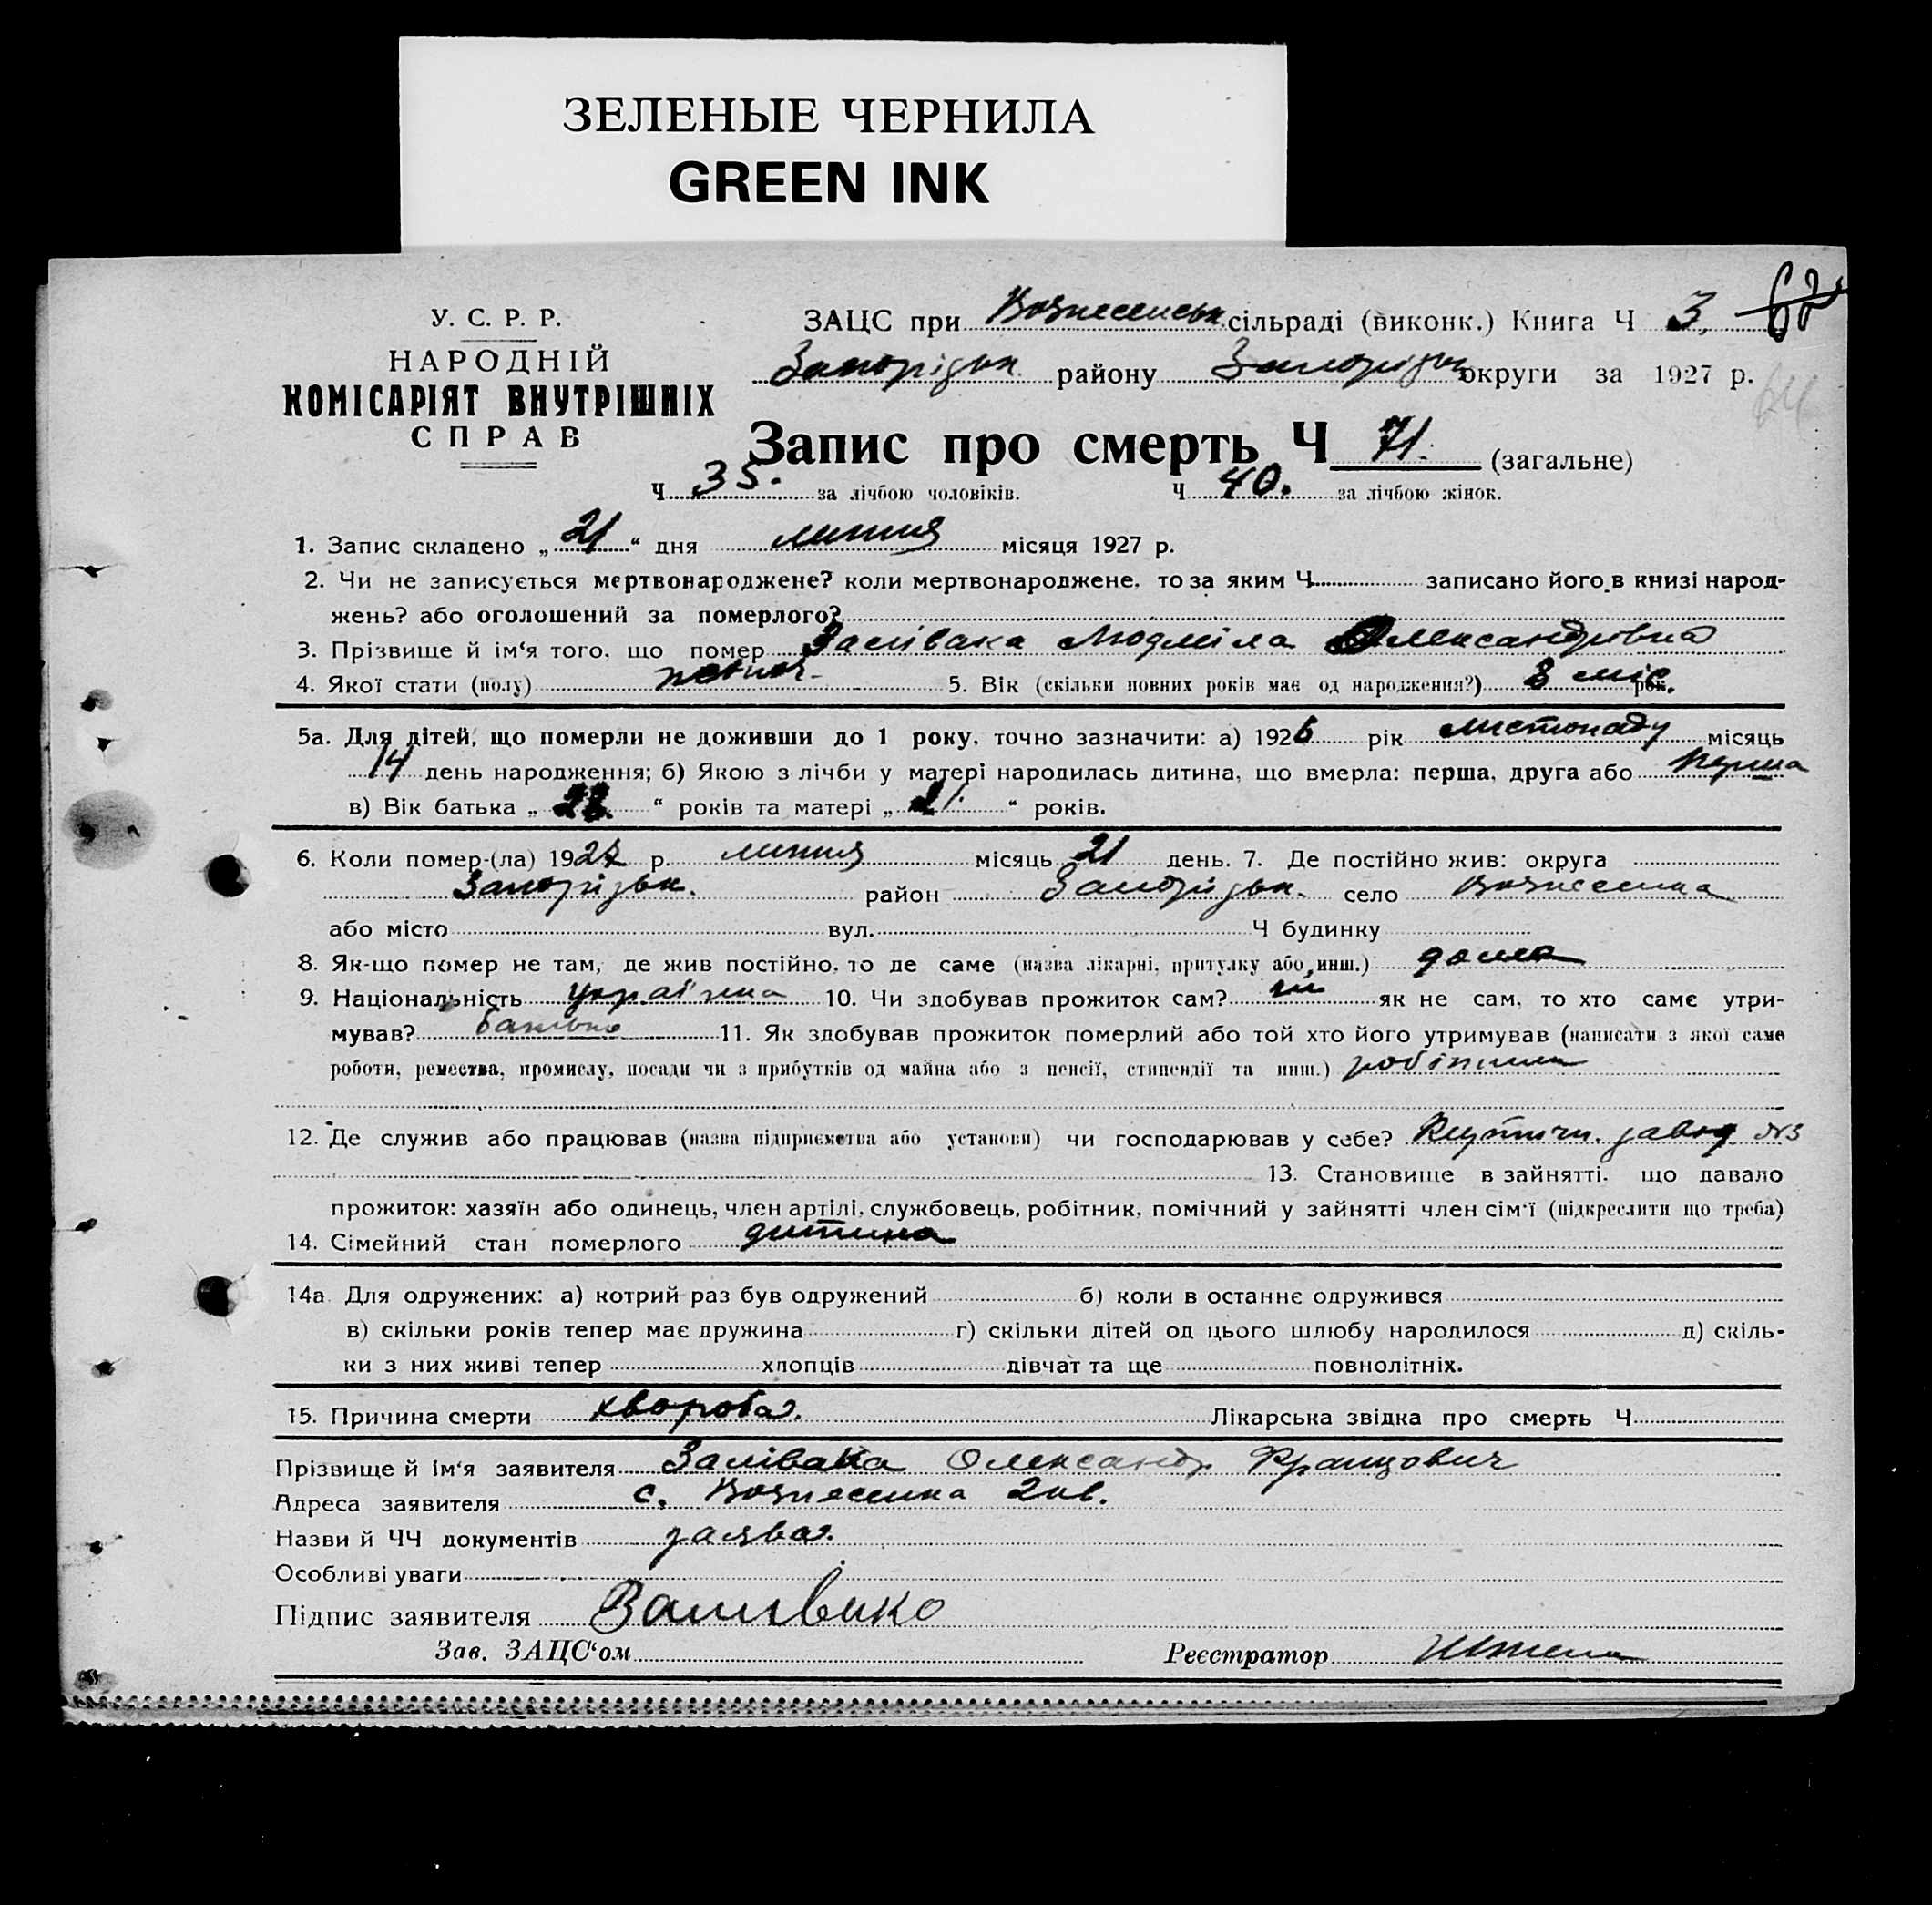 ЗЕЛЕНЫЕ ЧЕРНИЛА
GREEN INK
У. С. Р. Р.
НАРОДНІЙ
КОМІСАРІЯТ ВНУТРІШНІХ
СПРАВ
ЗАЦС при Вознесенськ. сільраді (виконк.) Книга Ч 3,
Запорізьк районуЗапорізьк округи за 1927 р.
64
Запис про смерть Ч 71. (загальне)
Ч 35. за лічбою чоловіків. Ч 40. за лічбою жінок.
1. Запис складено „21“ дня липня місяця 1927 р.
2. Чи не записується мертвонароджене? коли мертвонароджене, то за яким Ч записано його в книзі народ-
жень? або оголошений за померлого?
3. Прізвище й ім‘я того, що помер Залівака Людміла Олександрівна
4. Якої стати (полу) жіноч. 5. Вік (скільки повних років має од народження?) 8 міс. рок.
5а. Для дітей, що померли не доживши до 1 року, точно зазначити: а) 1926 рік листопаду місяць
14 день народження; б) Якою з лічби у матері народилась дитина, що вмерла: перша, друга або перша
в) Вік батька „ “ років та матері „21.“ років.
6. Коли помер-(ла) 1927 р. липня місяць 21 день. 7. Де постійно жив: округа
Запорізьк. район Запорізьк. село Вознесенка
або місто вул. Ч будинку
8. Як-що помер не там, де жив постійно, то де саме (назва лікарні, притулку або инш.) дома
9. Національність українка 10. Чи здобував прожиток сам? ні як не сам, то хто саме утри-
мував? батько 11. Як здобував прожиток померлий або той хто його утримував (написати з якої саме
роботи, ремества, промислу, посади чи з прибутків од майна або з пенсії, стипендії та инш.) робітник
12. Де служив або працював (назва підприємства або установи) чи господарював у себе? завод №3
13. Становище в зайнятті, що давало
прожиток: хазяїн або одинець, член артілі, службовець, робітник, помічний у зайнятті член сім‘ї (підкреслити що треба)
14. Сімейний стан померлого дитина
14а Для одружених: а) котрий раз був одружений б) коли в останнє одружився
в) скільки років тепер має дружина г) скільки дітей од цього шлюбу народилося д) скіль-
ки з них живі тепер хлопців дівчат та ще повнолітніх.
15. Причина смерти хвороба. Лікарська звідка про смерть Ч
Прізвище й ім‘я заявителя Залівака Олександр Францович
Адреса заявителя с. Вознесенка 2 кв.
Назви й ЧЧ документів заява.
Особливі уваги
Підпис заявителя
Зав. ЗАЦС‘ом Реєстратор